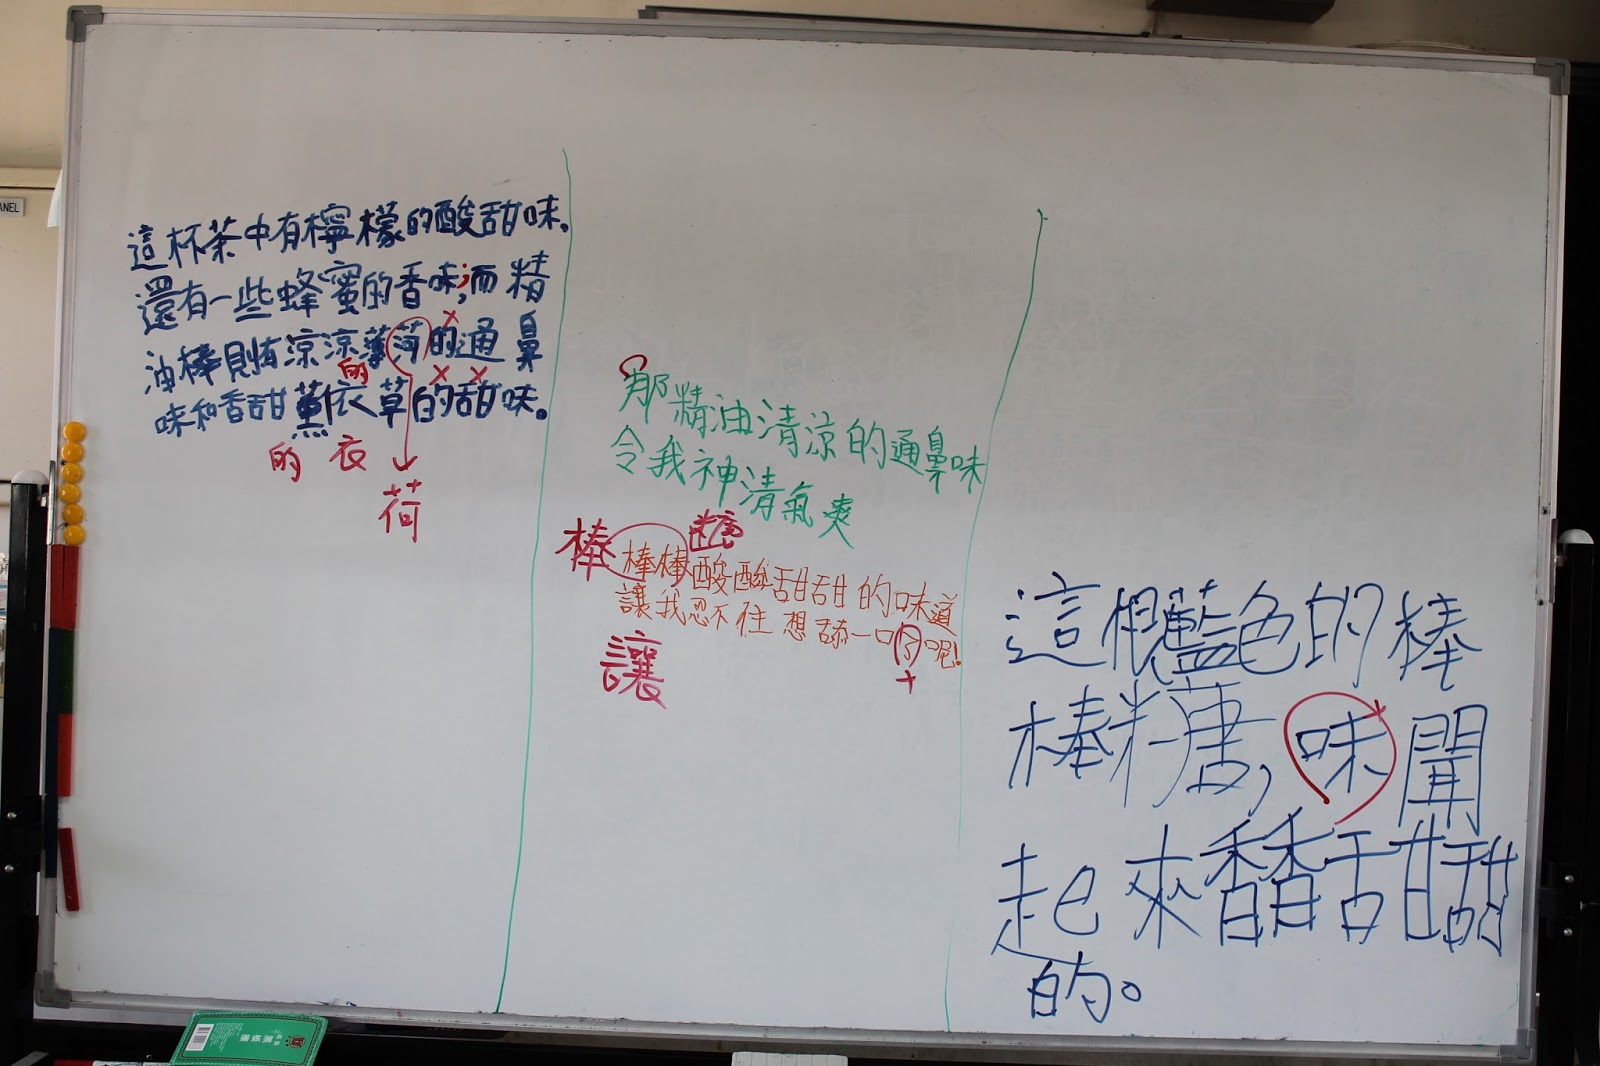 ANEL
這杯茶中有檸檬的酸甜味。
還有一些蜂蜜的香味;而精
油棒則有涼涼薄苛的通鼻
的
味和香甜薰衣草的甜味。
的 衣
荷
那精油清涼的通鼻味
令我神清氣爽
棒 糖
棒棒酸酸甜甜的味道
讓我忍不住想舔一口呢!
讓
這根藍色的棒
棒糖,味聞
起來香香甜甜
的。